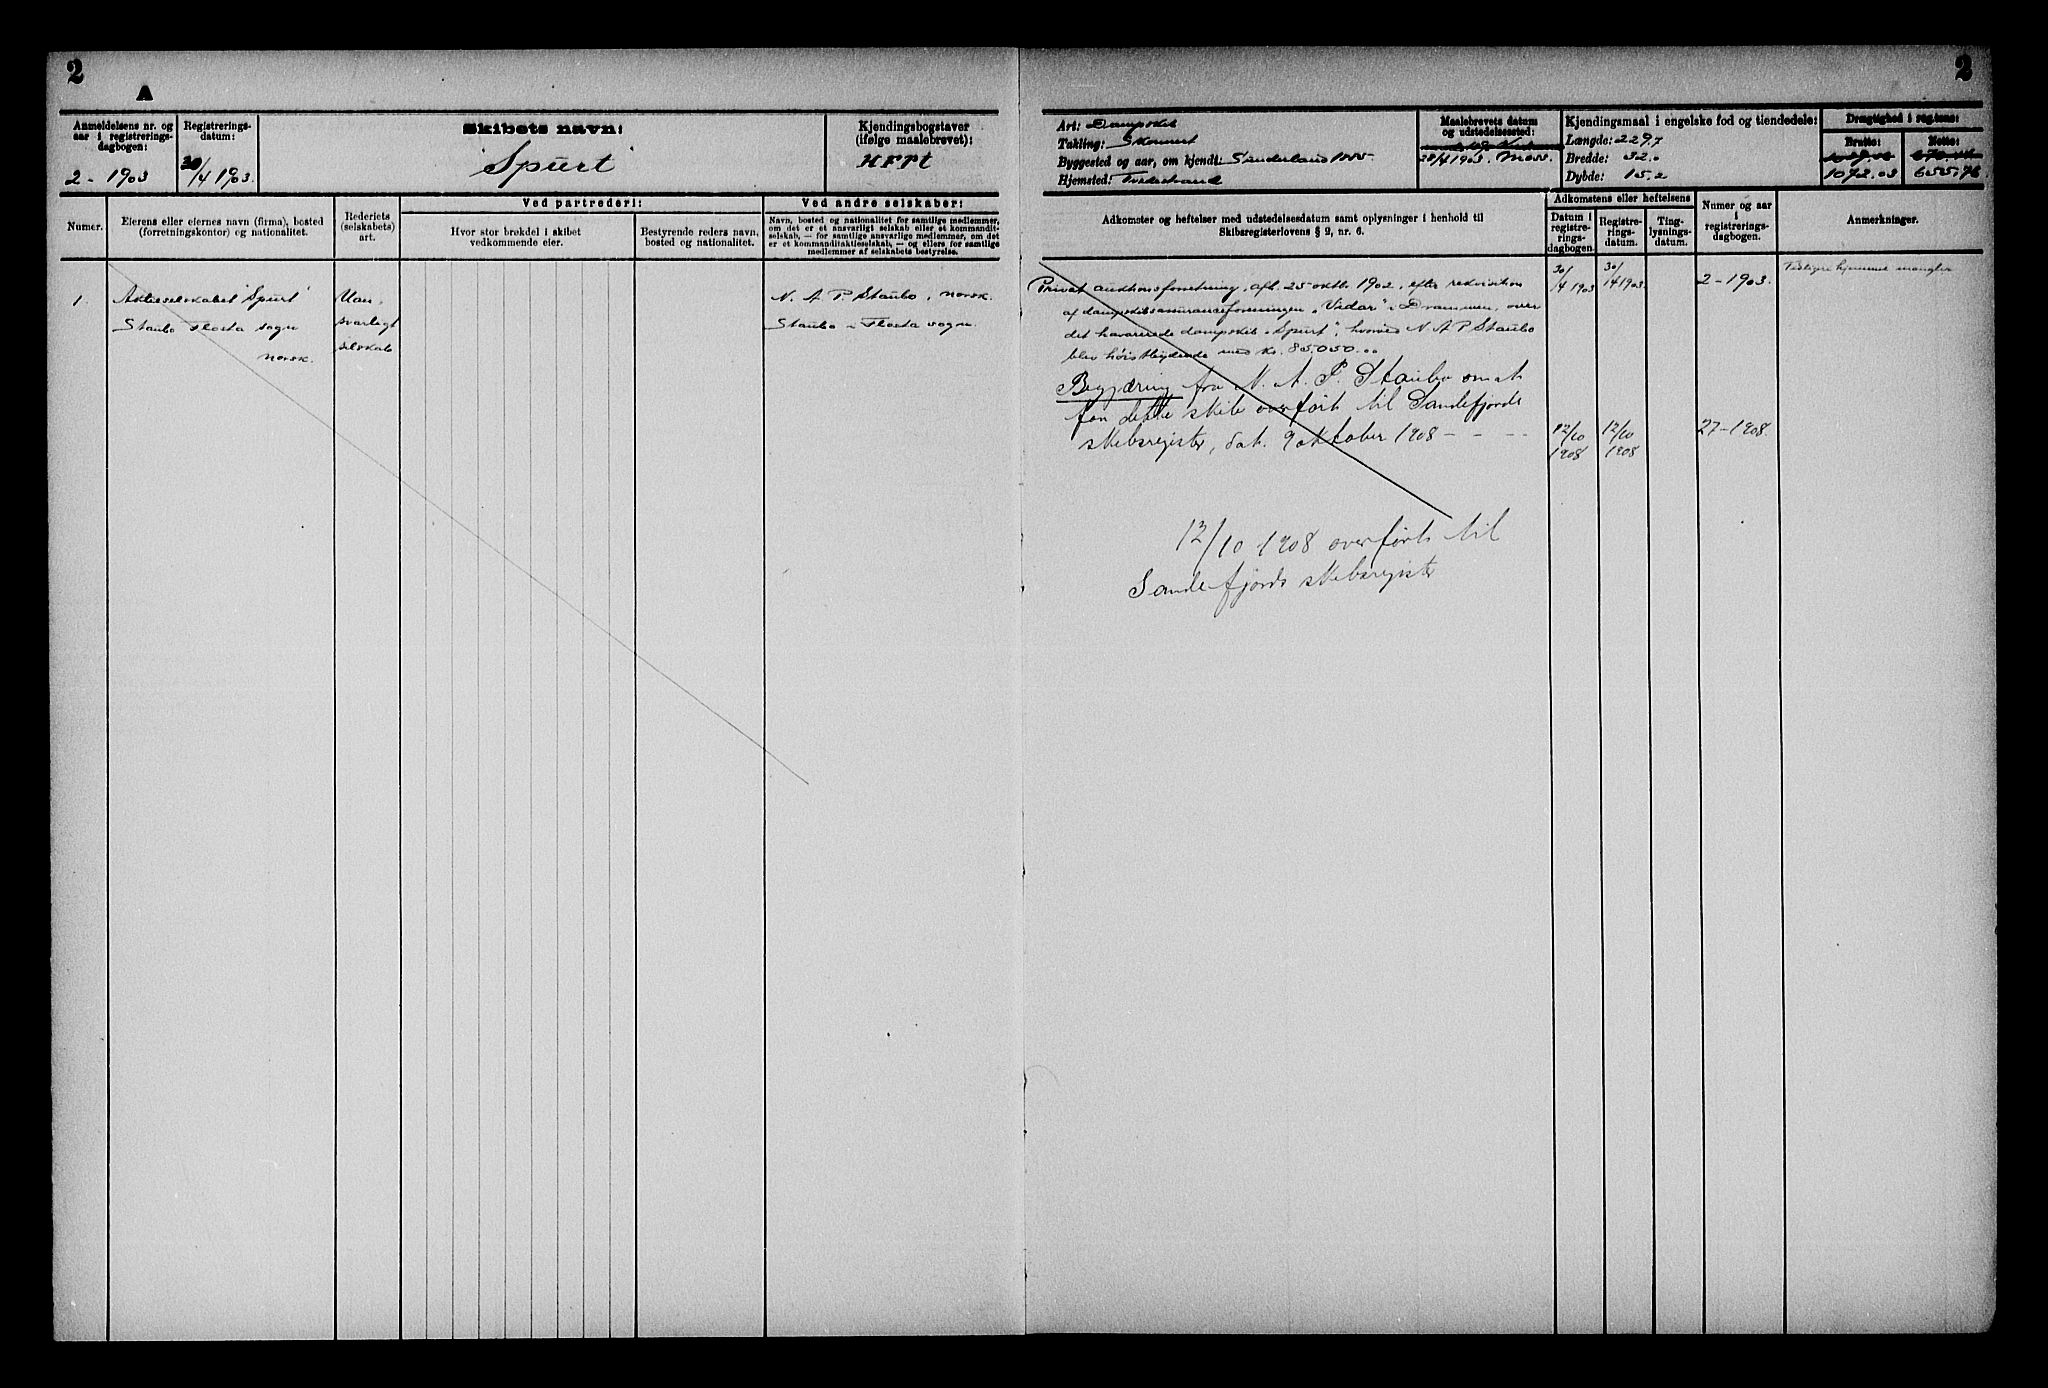 2
A
Anmeldelsens nr. og
aar i registrerings-
dagbogen:
2 - 1903
Registrerings-
datum:
30/4 1903.
Skibets navn:
"Spurt"
Kjendingsbogstaver
(ifølge maalebrevet):
Numer.
Eierens eller eiernes navn (firma), bosted
(forretningskontor) og nationalitet.
Rederiets
(selskabets)
art.
Ved partrederi:
Hvor stor brøkdel i skibet
vedkommende eier.
Bestyrende reders navn,
bosted og nationalitet.
Ved andre selskaber:
Navn, bosted og nationalitet for samtlige medlemmer,
om det er et ansvarligt selskab eller et kommandit-
selskab, — for samtlige ansvarlige medlemmer, om det
er et kommanditaktieselskab, — og ellers for samtlige
medlemmer af selskabets bestyrelse.
1. Aktieselskabet "Spurt"
Staubø Flosta sogn
norsk.
Uan-
svarligt
selskab
N. A. P. Staubo, norsk.
Staubo Flosta sogn.
2
Art: Dampskib
Takling: Skonnert
Byggested og aar, om kjendt: Sunderland 1885
Hjemsted: Tvedestrand
Maalebrevets datum
og udstedelsessted:
28/4 1903. Moss.
Kjendingsmaal i engelske fod og tiendedele:
Længde: 229.7
Bredde: 32.0
Dybde: 15.2
Drægtighed i reg.tons:
Brutto:
1072.03
Netto:
655.76
Adkomster og heftelser med udstedelsesdatum samt oplysninger i henhold til
Skibsregisterlovens § 9, nr. 6.
Adkomstens eller heftelsens
Datum i
registre-
rings-
dagbogen.
Registre-
rings-
datum.
Ting-
lysnings-
datum.
Numer og aar
i
registrerings-
dagbogen.
Anmerkninger.
Privat auktionsforretning, afh. 25 oktbr. 1902, efter rekvisition
af dampskibsassuranceforeningen "Vidar" i Drammen, over
det havarerede dampskib "Spurt", hvorved N A P Staubo
blev høistbydende med kr. 85.050.00
30/4 1903
30/4 1903.
2 - 1903.
mangler
Begjæring fra N. A. P. Staubo om at
faa dette skib overført til Sandefjords
skibsregister, dat. 9 oktober 1908 - - - -
12/10
1908
12/10
1908
27 - 1908.
12/10 1908 overført til
Sandefjords skibsregister